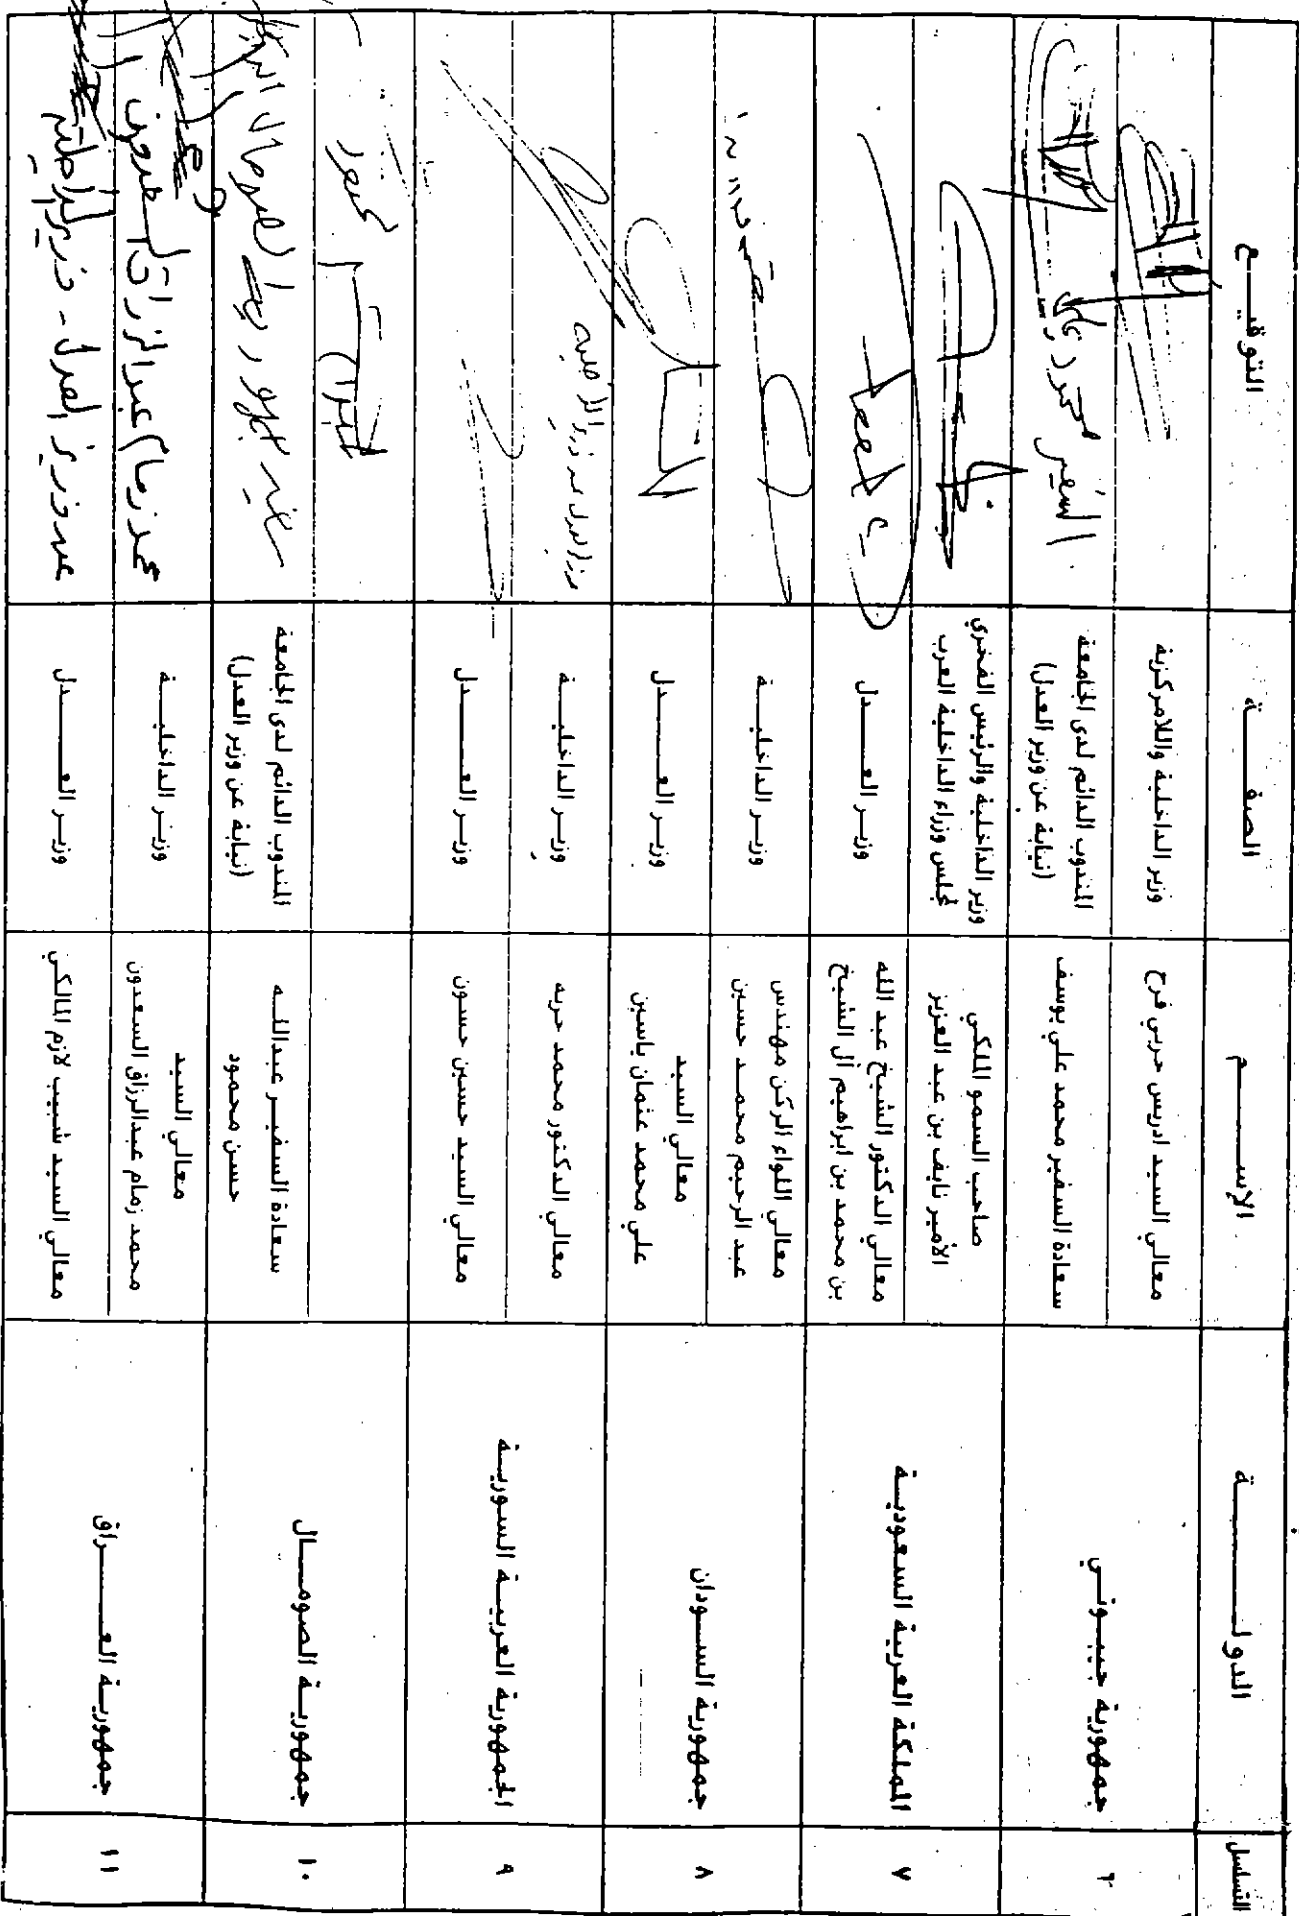 التسلسل
الدولـــــــــة
الإســــــم
الصفـــــة
التوقيــــع
٦
جمهورية جيبـــوتـــي
معالي السيد ادريس حربي فرح
وزير الداخلية واللامركزية
سعادة السفير محمد علي يوسف
المندوب الدائم لدى الجامعة
(نيابة عن وزير العدل)
السفير محمد
٧
المملكة العربية السعوديـــة
صاحب السمو الملكي
الأمير نايف بن عبد العزيز
وزير الداخلية والرئيس الفخري
لمجلس وزراء الداخلية العرب
معالي الدكتور الشيخ عبد الله
بن محمد بن ابراهيم آل الشيخ
وزيـــر العـــــــدل
٨
جمهورية الســـودان
معالي اللواء الركن مهندس
عبد الرحيم محمـــد حسين
وزيـــر الداخليـــــة
معالي السيد
علي محمد عثمان ياسين
وزيـــر العـــــــدل
٩
الجمهورية العربيـــة السوريـــة
معالي الدكتور محمد حربه
وزيـــر الداخليـــــة
معالي السيد حسين حسون
وزيـــر العـــــــدل
١٠
جمهوريـــة الصومـــــال
سعادة السفيـــر عبداللـــه
حسن محمود
المندوب الدائم لدى الجامعة
(نيابة عن وزير العدل)
سفير جمهورية الصومال
١١
جمهوريـــة العـــــــراق
معالي السيد
محمد زمام عبدالرزاق السعدون
وزيـــر الداخليـــــة
محمد زمام عبد الرزاق السعدون
معالي السيد شبيب لازم المالكي
وزيـــر العـــــــدل
عن وزير العدل - وزير الداخلية